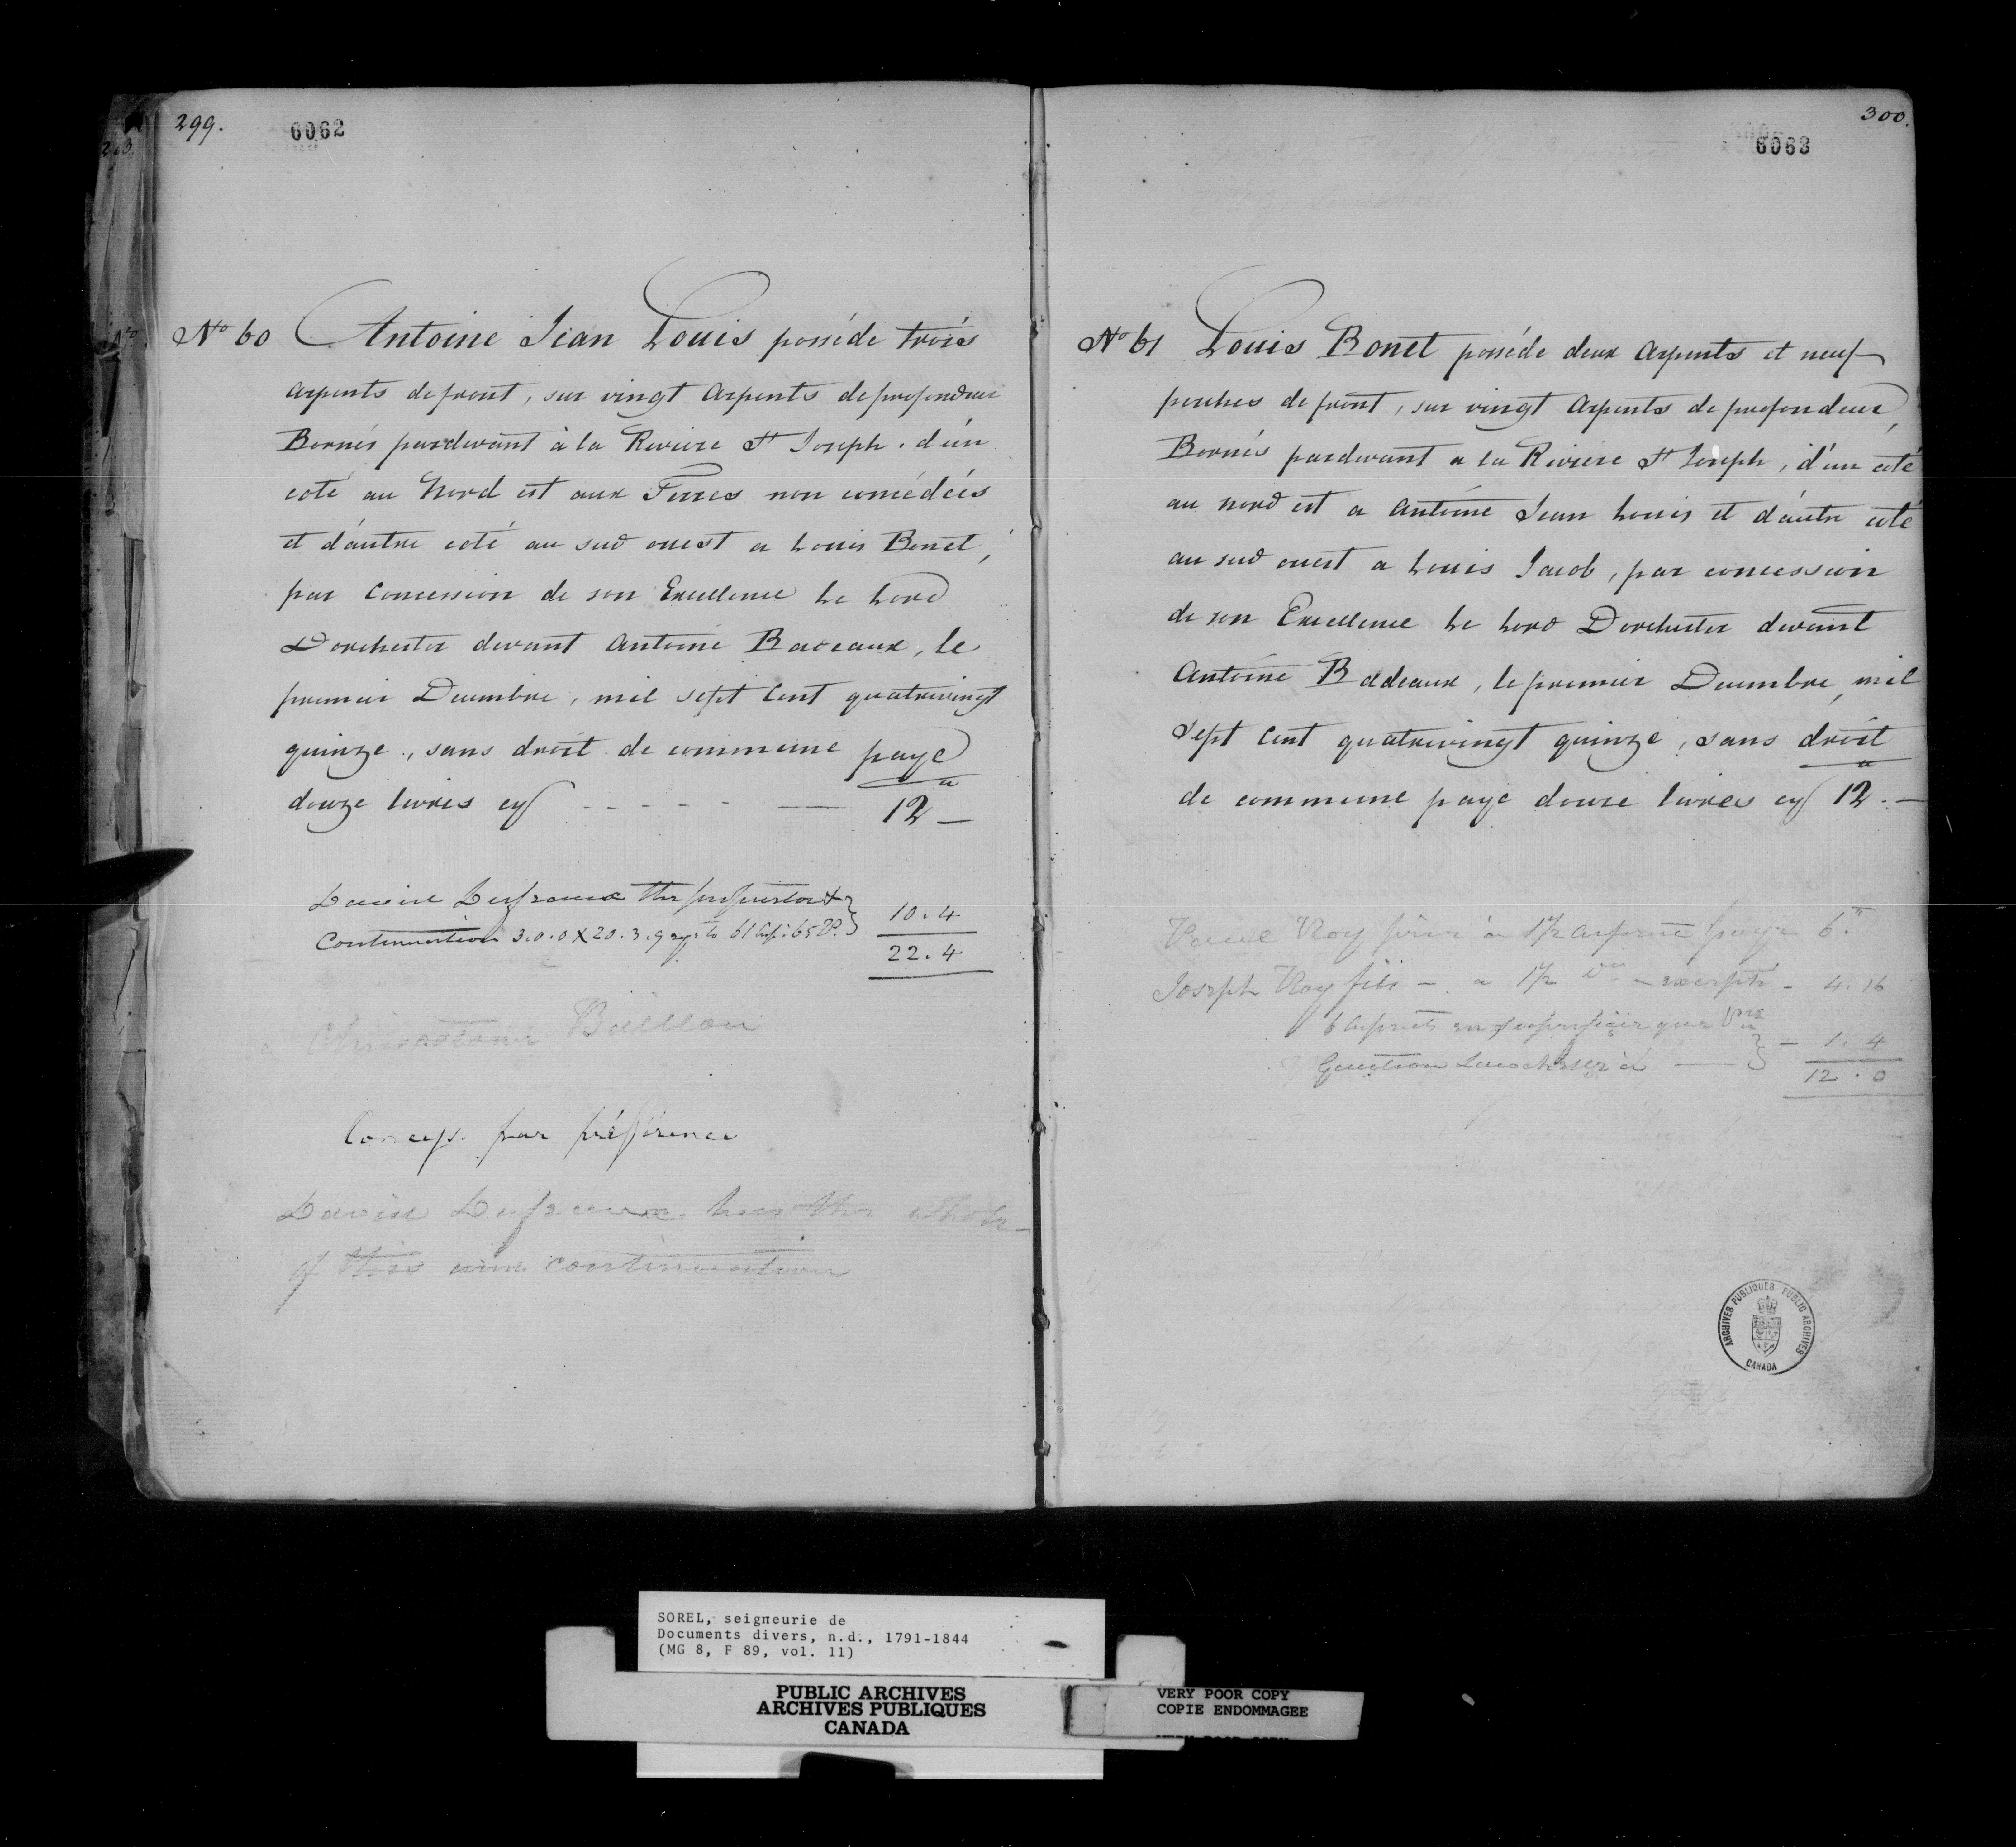 299.
6062
No 60 Antoine Jean Louis posséde trois
arpents de front, sur vingt Arpents de profondeur
Bornés pardevant à la Riviere St Joseph. d'un
coté au Nord est aux Terres non concédées
et d'autre coté au sud ouest a Louis Bonet,
par Concession de son Excellence Le Lord
Dorchester devant Antoine Badeaux, le
premier Decembre, mil sept Cent quatrevingt
quinze, sans droit de commune paye
douze livres cy - - - - - 12 -
the proprietor
Continuation 3.0.0 X 20.3.9 61 65 P. } 10.4
22.4
Concess. par préférence
has the whole
of this continuation
300.
6063
No 61 Louis Bonet posséde deux Arpents et neuf
perches de front, sur vingt Arpents de profondeur,
Bornés pardevant a la Riviere St Joseph, d'un coté
au nord est a Antoine Jean Louis et d'autre coté
au sud ouest a Louis Jacob, par concession
de son Excellence Le Lord Dorchester devant
Antoine Badeaux, le premier Decembre, mil
sept Cent quatrevingt quinze, sans droit
de commune paye douze livres cy 12. -
Roy à 1 1/2 arpent paye 6.
Joseph Roy fils - a 1 1/2 Do - excepté - 4.16
6 arpents en superficie que
- 1.4
12.0
ARCHIVES PUBLIQUES PUBLIC ARCHIVES
CANADA
SOREL, seigneurie de
Documents divers, n.d., 1791-1844
(MG 8, F 89, vol. 11)
PUBLIC ARCHIVES
ARCHIVES PUBLIQUES
CANADA
VERY POOR COPY
COPIE ENDOMMAGEE